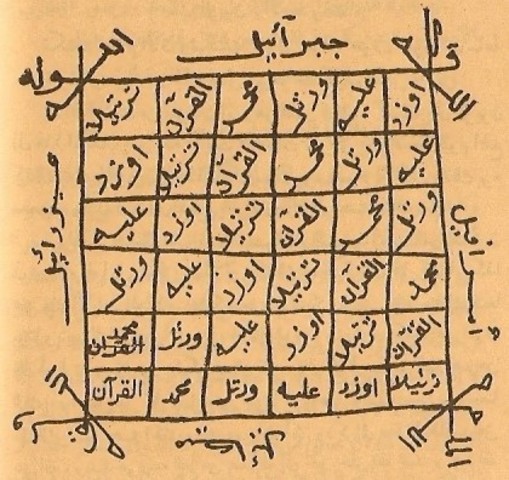 جبرآئيل
الله
اوزد عليه ورتل محمد القرآن ترتيلا
عليه ورتل محمد القرآن ترتيلا اوزد
ورتل محمد القرآن ترتيلا اوزد عليه
محمد القرآن ترتيلا اوزد عليه ورتل
القرآن ترتيلا اوزد عليه ورتل محمد
ترتيلا اوزد عليه ورتل محمد القرآن
أسرافيل
عزرائيل